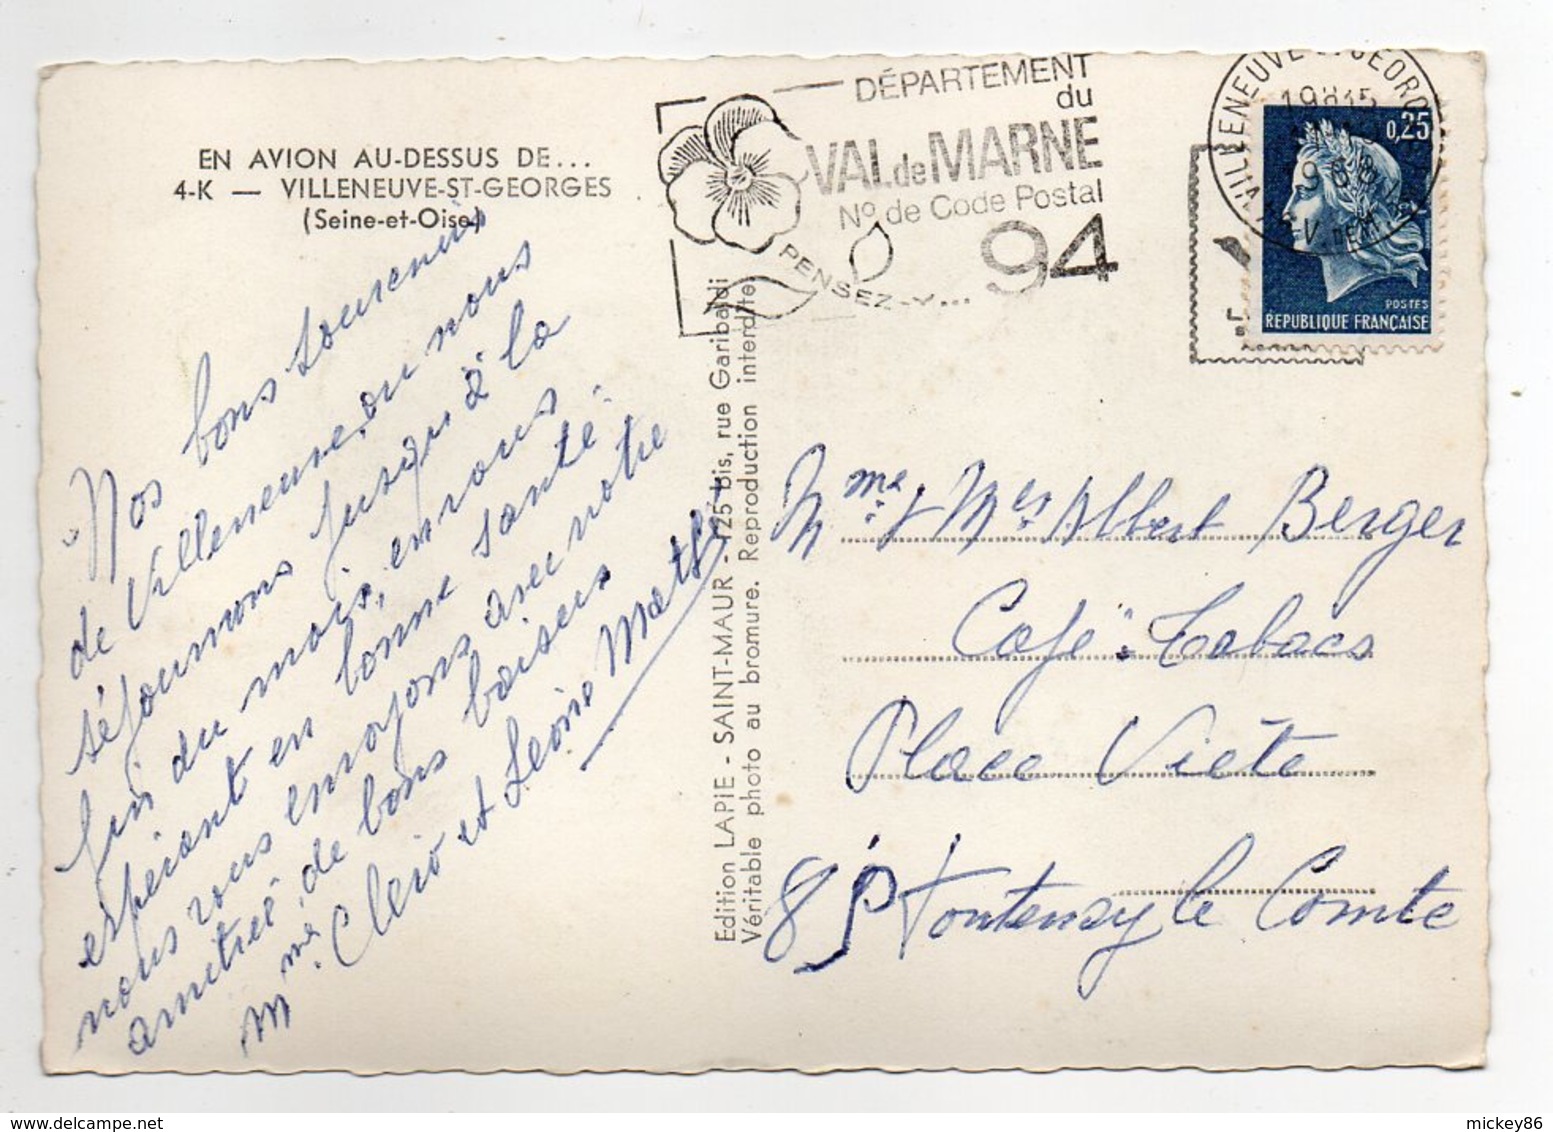 EN AVION AU-DESSUS DE...
4-K — VILLENEUVE-ST-GEORGES
(Seine-et-Oise)
Nos bons souvenirs
de Villeneuve, ou nous
séjournons jusqu'à la
fin du mois, en vous
espérant en bonne santé.
nous vous envoyons avec notre
amitié, de bons baisers
Mme Clero et Léonie Mathé
Edition LAPIE - SAINT-MAUR - 125 bis, rue Garibaldi
Véritable photo au bromure. Reproduction interdite
DÉPARTEMENT
du
VAL de MARNE
N° de Code Postal
94
PENSEZ-Y...
0,25
POSTES
REPUBLIQUE FRANÇAISE
Mme & Mer Albert Berger
Café-Tabacs
Place Viete
85 Fontenay le Comte
mickey86